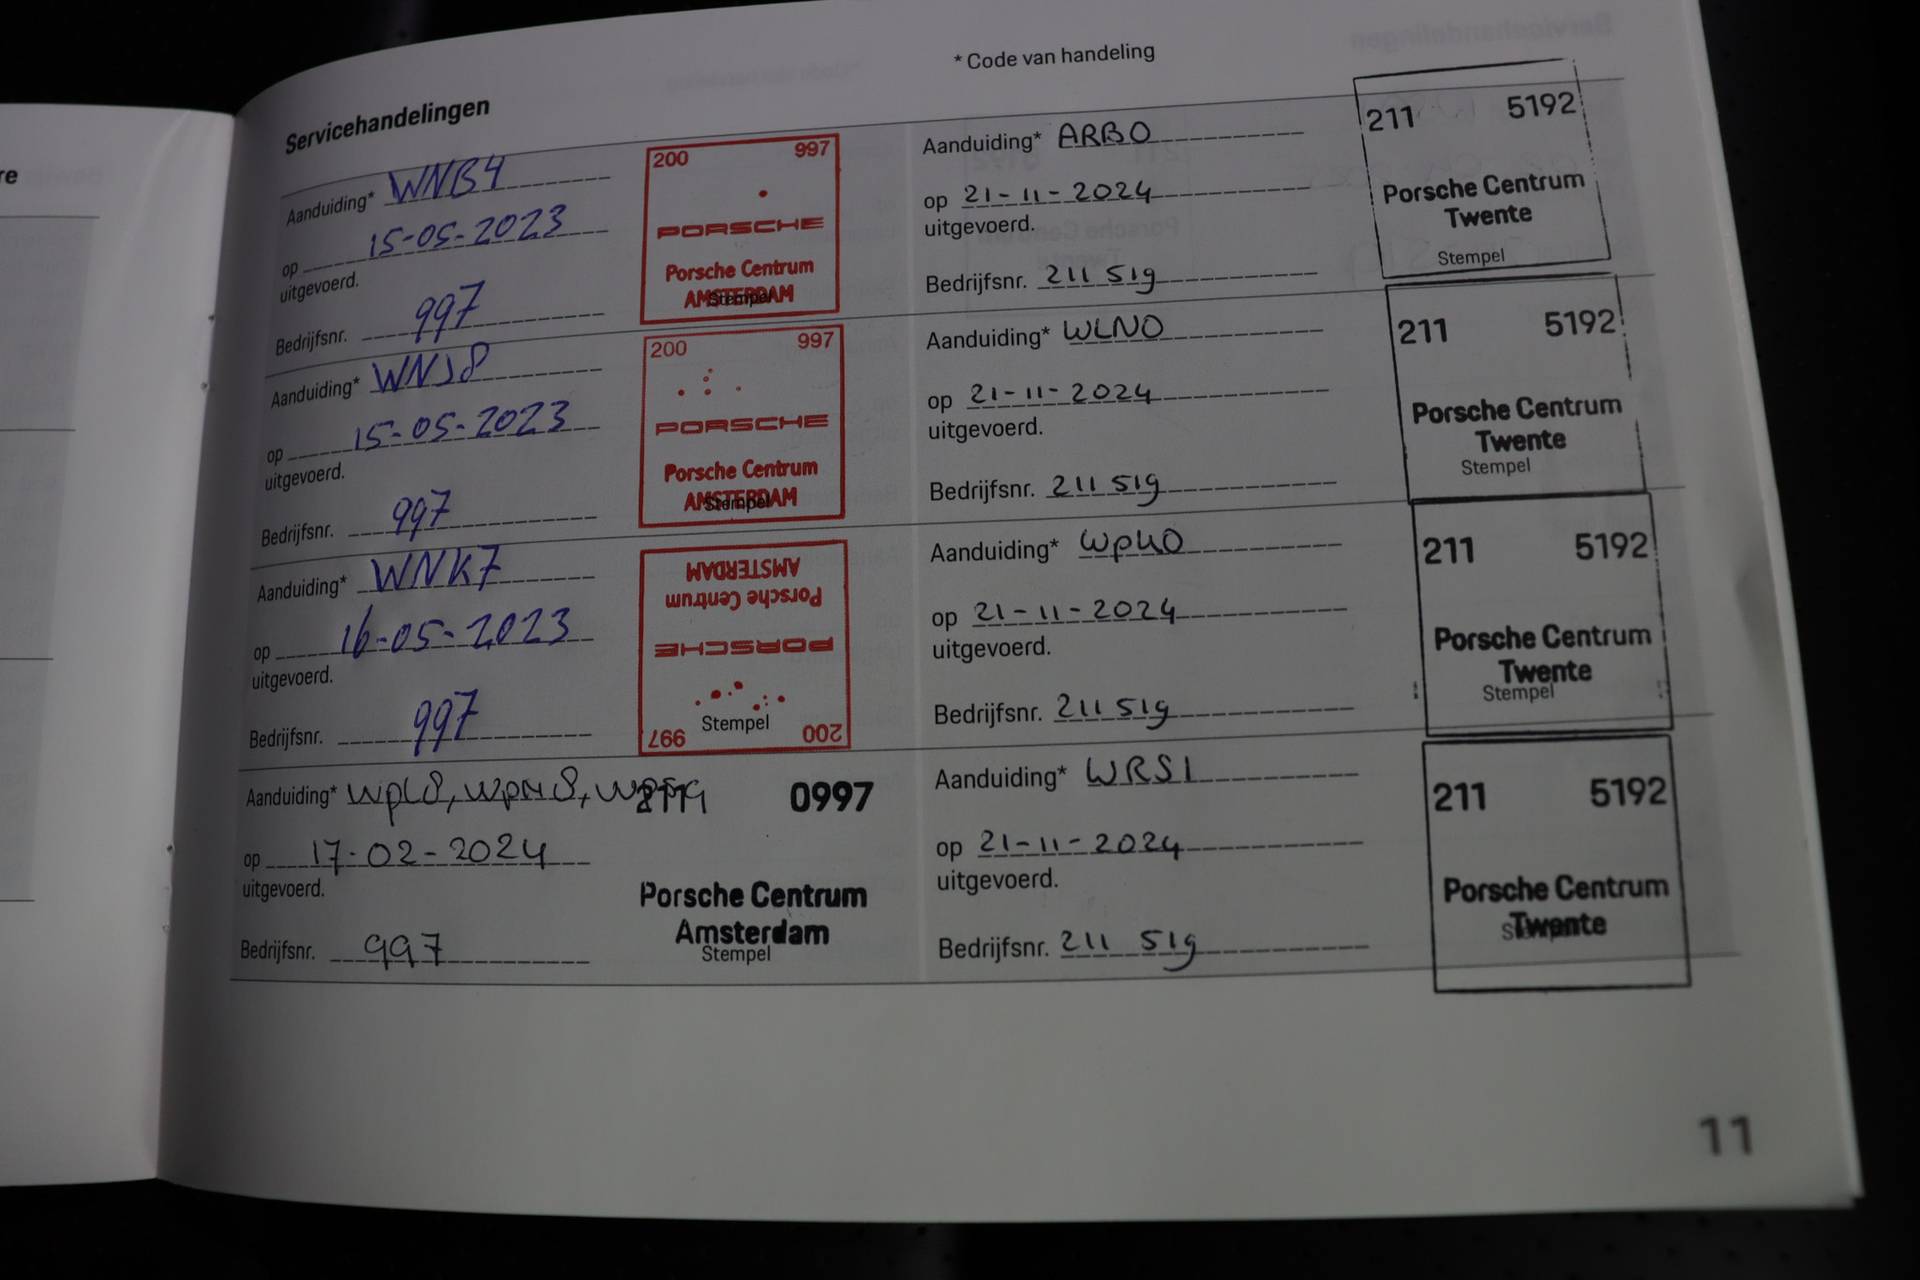 re
Servicehandelingen
* Code van handeling
Aanduiding* WNB4
op 15-05-2023
uitgevoerd.
Bedrijfsnr. 997
200 997
PORSCHE
Porsche Centrum
AMSTERDAM
Stempel
Aanduiding* WNJ8
op 15-05-2023
uitgevoerd.
Bedrijfsnr. 997
200 997
PORSCHE
Porsche Centrum
AMSTERDAM
Stempel
Aanduiding* WNK7
op 16-05-2023
uitgevoerd.
Bedrijfsnr. 997
AMSTERDAM
Porsche Centrum
PORSCHE
Stempel
997 200
Aanduiding* WPL8, WPM8,
op 17-02-2024
uitgevoerd.
Bedrijfsnr. 997
0997
Porsche Centrum
Amsterdam
Stempel
Aanduiding* ARB0
op 21-11-2024
uitgevoerd.
Bedrijfsnr. 211 519
211 5192
Porsche Centrum
Twente
Stempel
Aanduiding* WLN0
op 21-11-2024
uitgevoerd.
Bedrijfsnr. 211 519
211 5192
Porsche Centrum
Twente
Stempel
Aanduiding* WPU0
op 21-11-2024
uitgevoerd.
Bedrijfsnr. 211 519
211 5192
Porsche Centrum
Twente
Stempel
Aanduiding* WRS1
op 21-11-2024
uitgevoerd.
Bedrijfsnr. 211 519
211 5192
Porsche Centrum
Twente
Stempel
11